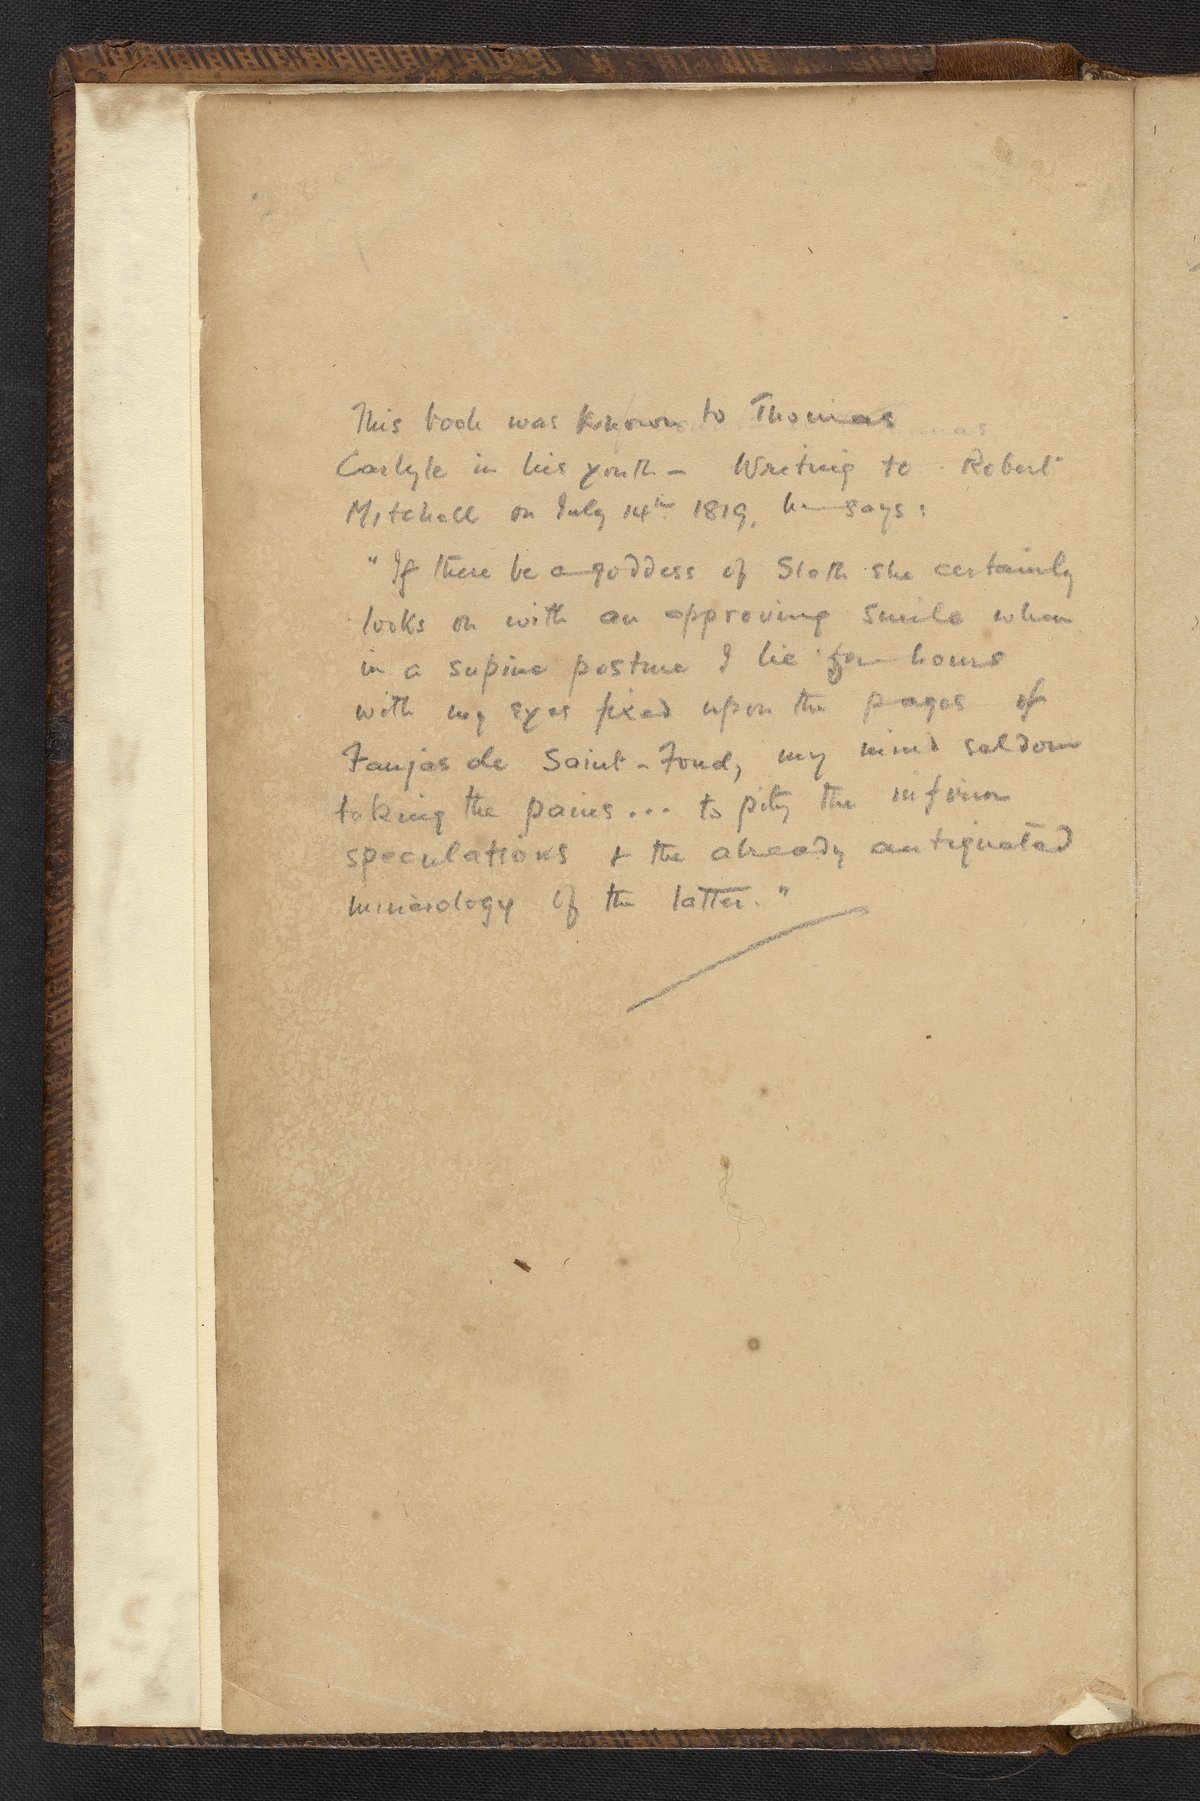 This book was known to Thomas
Carlyle in his youth - Writing to Robert
Mitchell on July 14th 1819, he says:
"If there be a goddess of Sloth she certainly
looks on with an approving smile when
in a supine posture I lie for hours
with my eyes fixed upon the pages of
Faujas de Saint-Fond, my mind seldom
taking the pains ... to pity the infirm
speculations & the already antiquated
minerology of the latter."